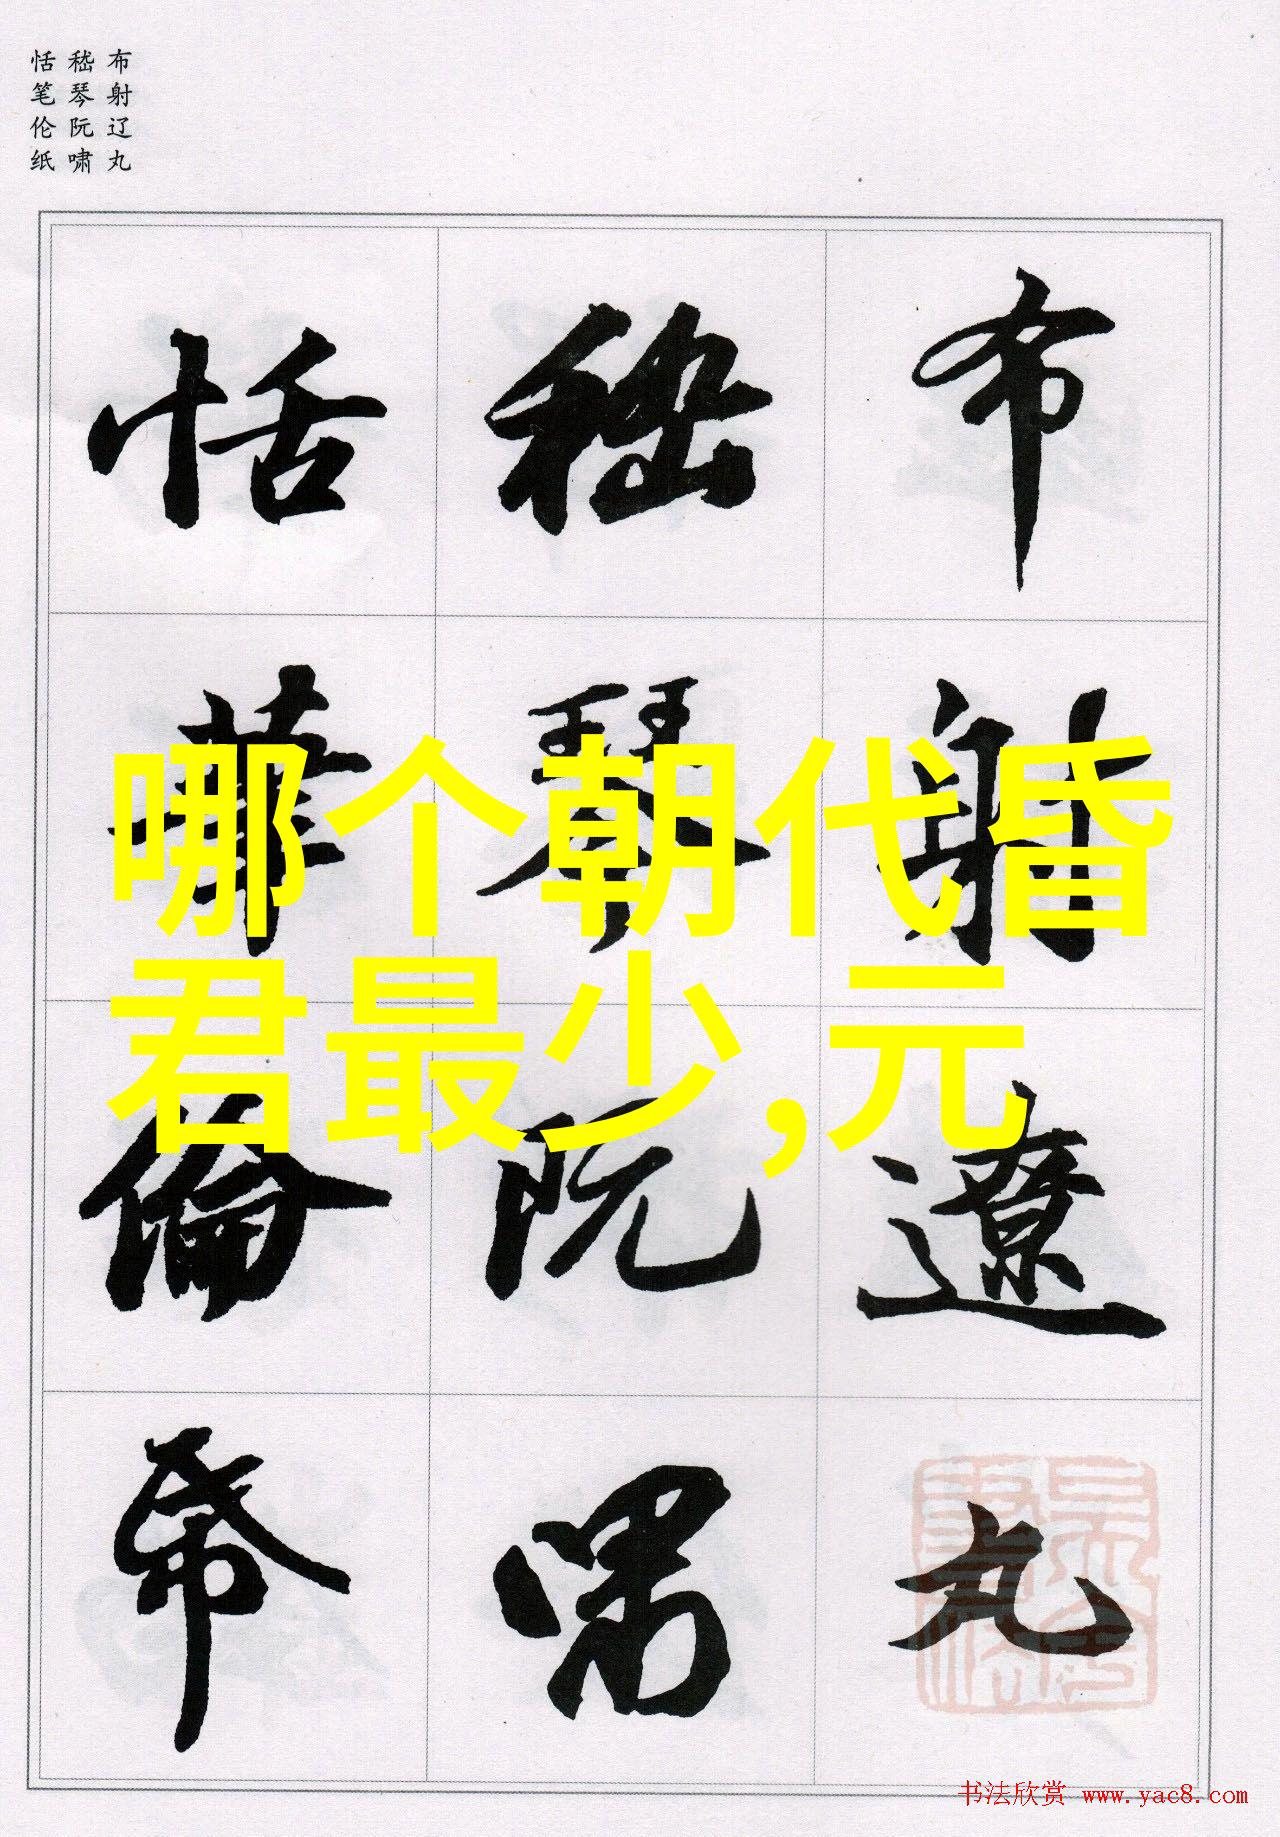 布射辽丸
嵇琴阮啸
恬笔伦纸
布
射
遼
丸
嵇
琴
阮
嘯
恬
筆
倫
紙
哪个朝代昏
君最少,元
书法欣赏 www.yac8.com